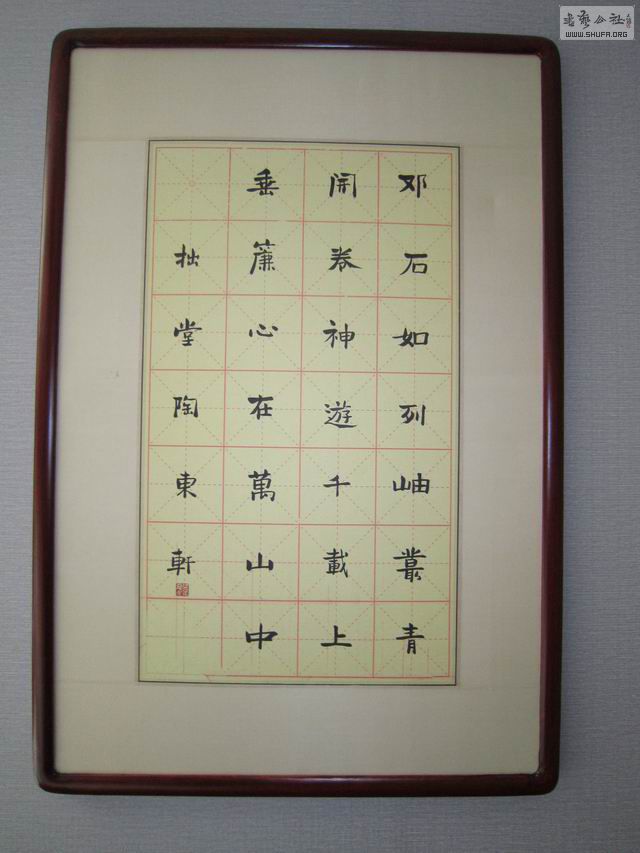 邓石如列岫叢青
開卷神遊千載上
垂簾心在萬山中
拙堂陶東軒
書藝公社
WWW.SHUFA.ORG